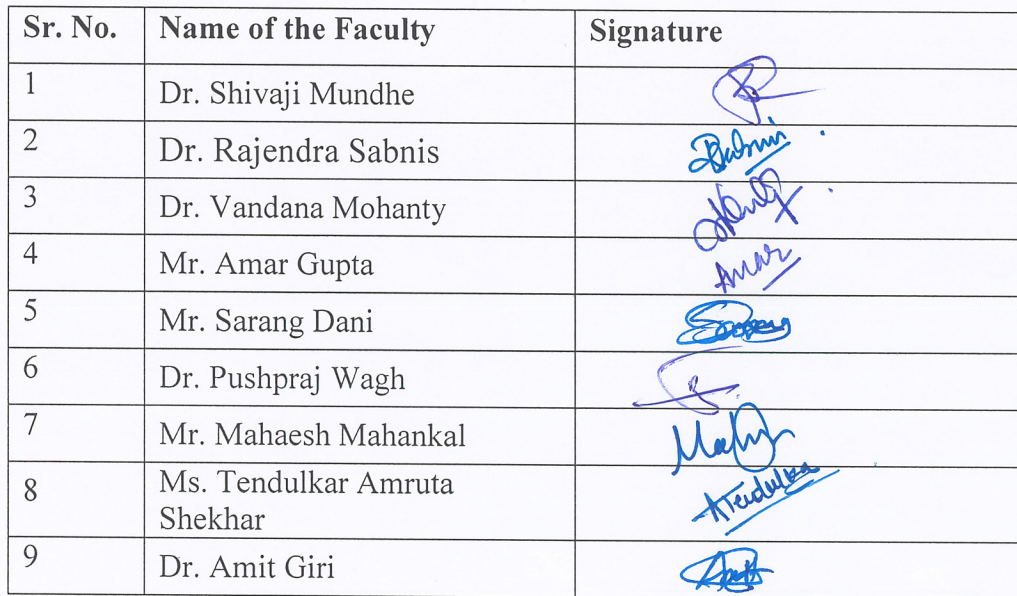 Sr. No. Name of the Faculty Signature
1 Dr. Shivaji Mundhe
2 Dr. Rajendra Sabnis
3 Dr. Vandana Mohanty
4 Mr. Amar Gupta Amar
5 Mr. Sarang Dani
6 Dr. Pushpraj Wagh
7 Mr. Mahaesh Mahankal
8 Ms. Tendulkar Amruta
Shekhar ATendulkar
9 Dr. Amit Giri